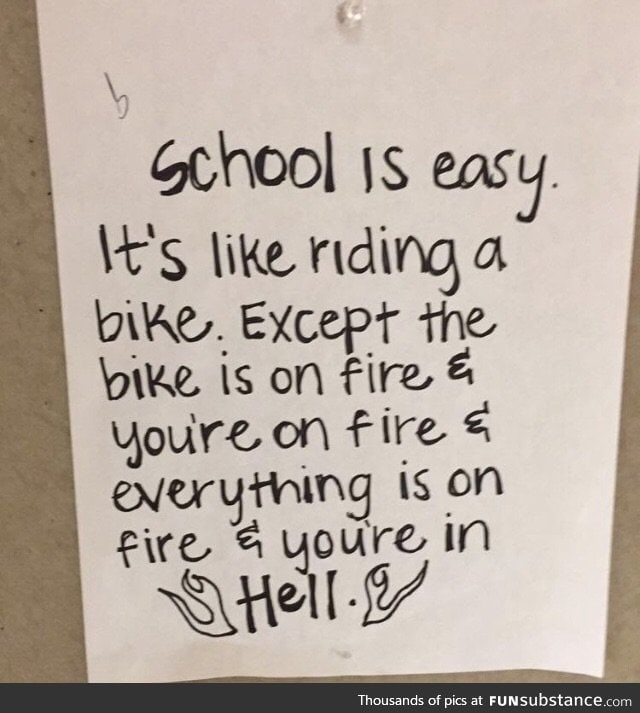 b
School is easy.
It's like riding a
bike. Except the
bike is on fire &
you're on fire &
everything is on
fire & you're in
Hell.
Thousands of pics at FUNsubstance.com